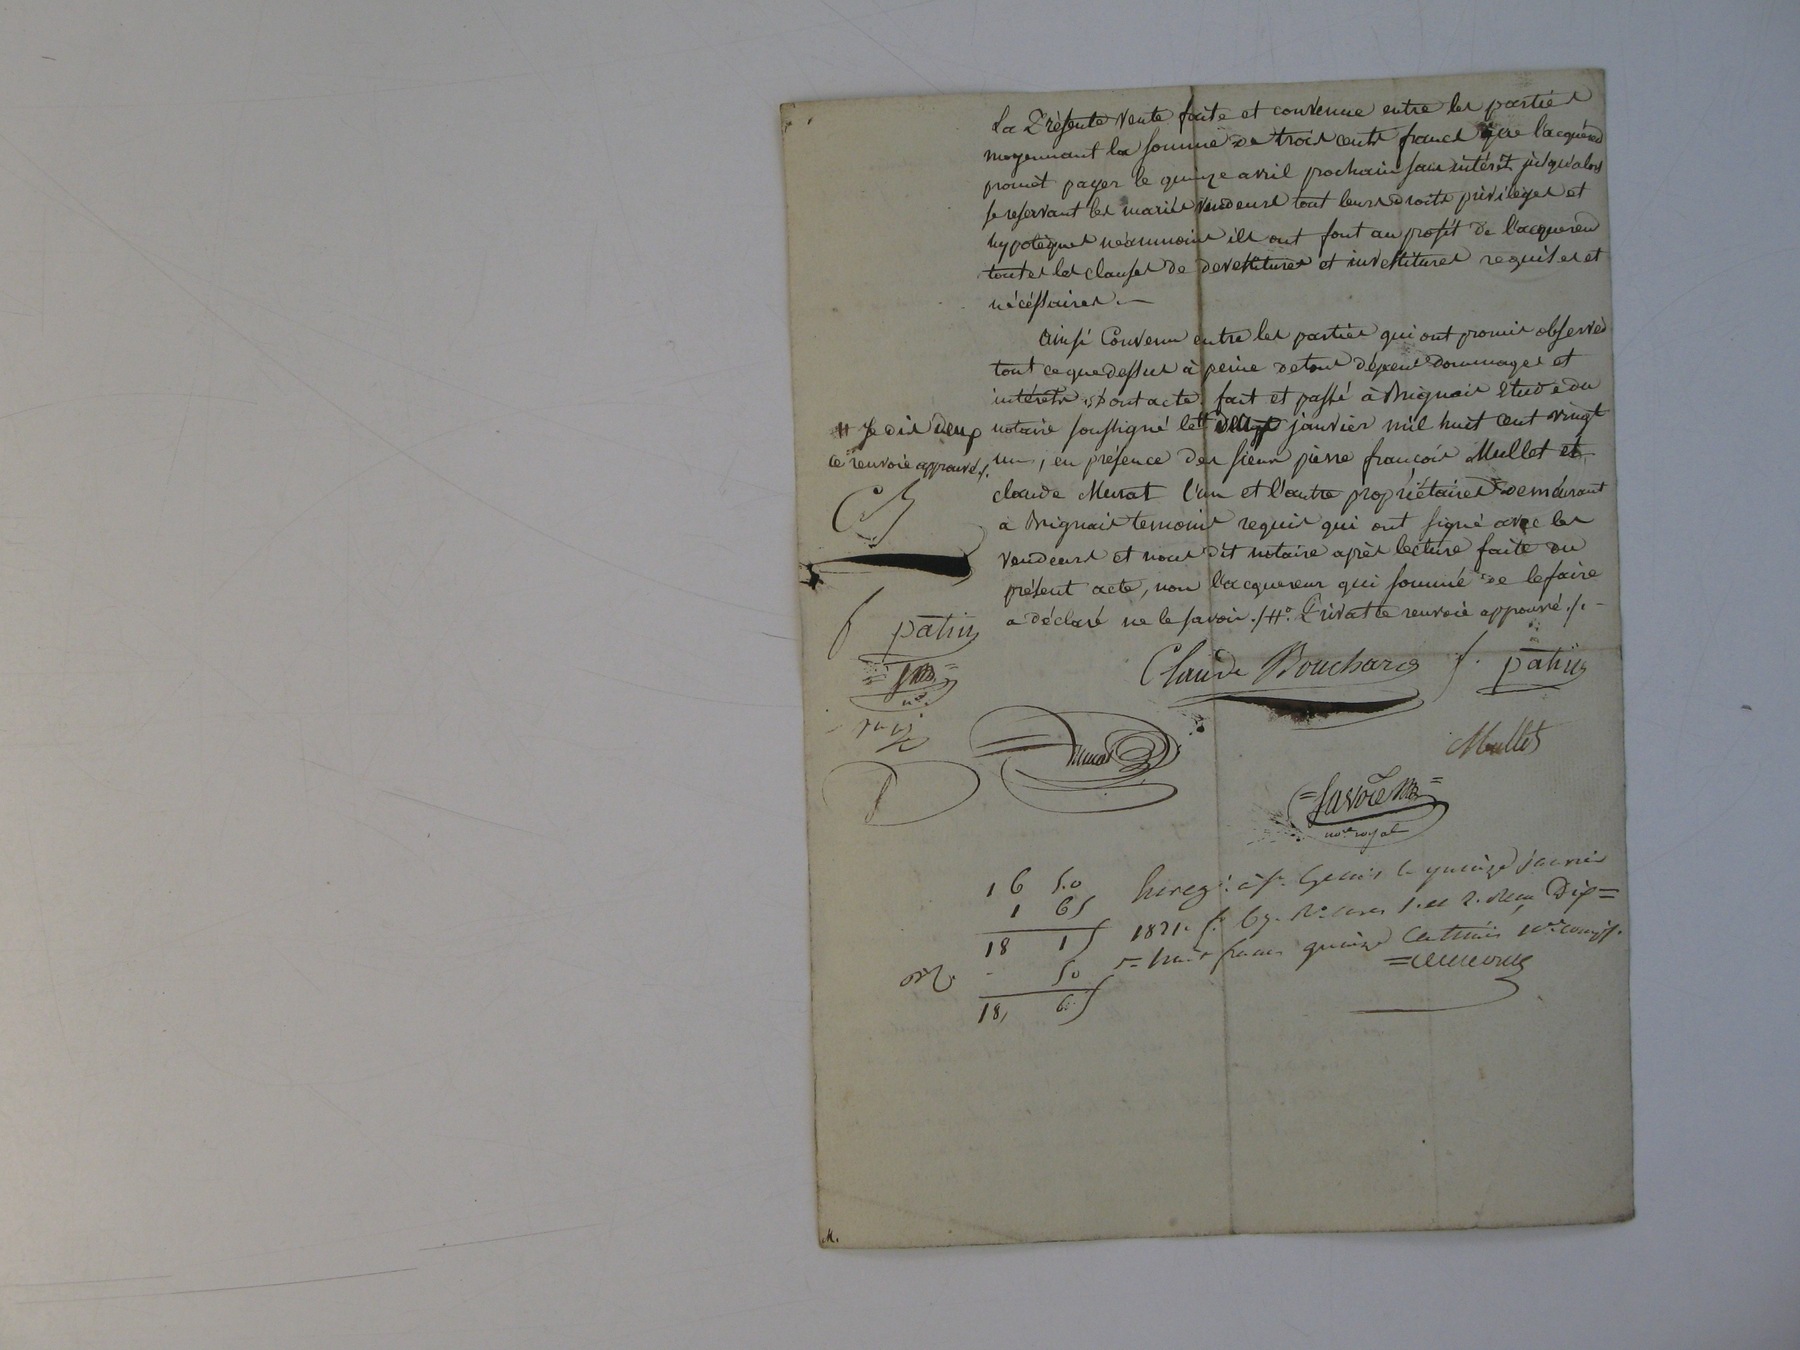 La Présente vente faite et convenue entre les parties
moyennant la somme de trois cents francs que l'acquéreur
promet payer le quinze avril prochain sans intérêt jusqu'alors
se reservant les mariés vendeurs tout leurs droits privilèges et
hypotèques néanmoins ils ont font au profit de l'acquereur
toutes les clauses de devestitures et investitures requises et
nécéssaires.—
Ainsi Convenu entre les parties qui ont promis observer
tout ce que dessus à peine de tous dépens dommages et
intérets, dont acte. fait et passé à Brignais étude du
notaire soussigné le # janvier mil huit cent vingt
un, en présence des sieurs pierre françois Mullet et
claude Murat l'un et l'autre propriétaires demeurant
à Brignais temoins requis qui ont signé avec les
vendeurs et nous dit notaire après lecture faite du
présent acte, non l'acquereur qui sommé de le faire
a déclaré ne le savoir ./.
renvoie approuvé ./.
# Je dis deux
ce renvoie approuvé ./.
CB
f patin
Claude Bouchard f. patin
Murat
Mullet
Savoie
no.re royal
16 50
1 65
18 15
50
18, 65
Enreg. à St. Genis le quinze janvier
1821. f. 69. Dix=
=huit francs quinze Centimes
M.